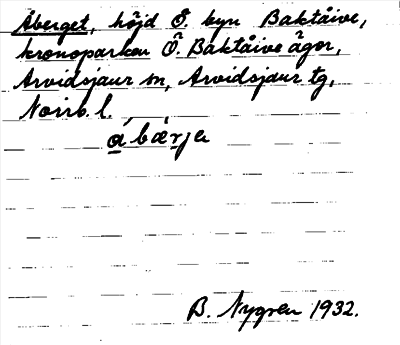 Åberget, höjd Ö. byn Baktåive,
kronoparken Ö. Baktåive ägor,
Arvidsjaur sn, Arvidsjaur tg,
Norrb. l.
åbærje
B. Nygren 1932.